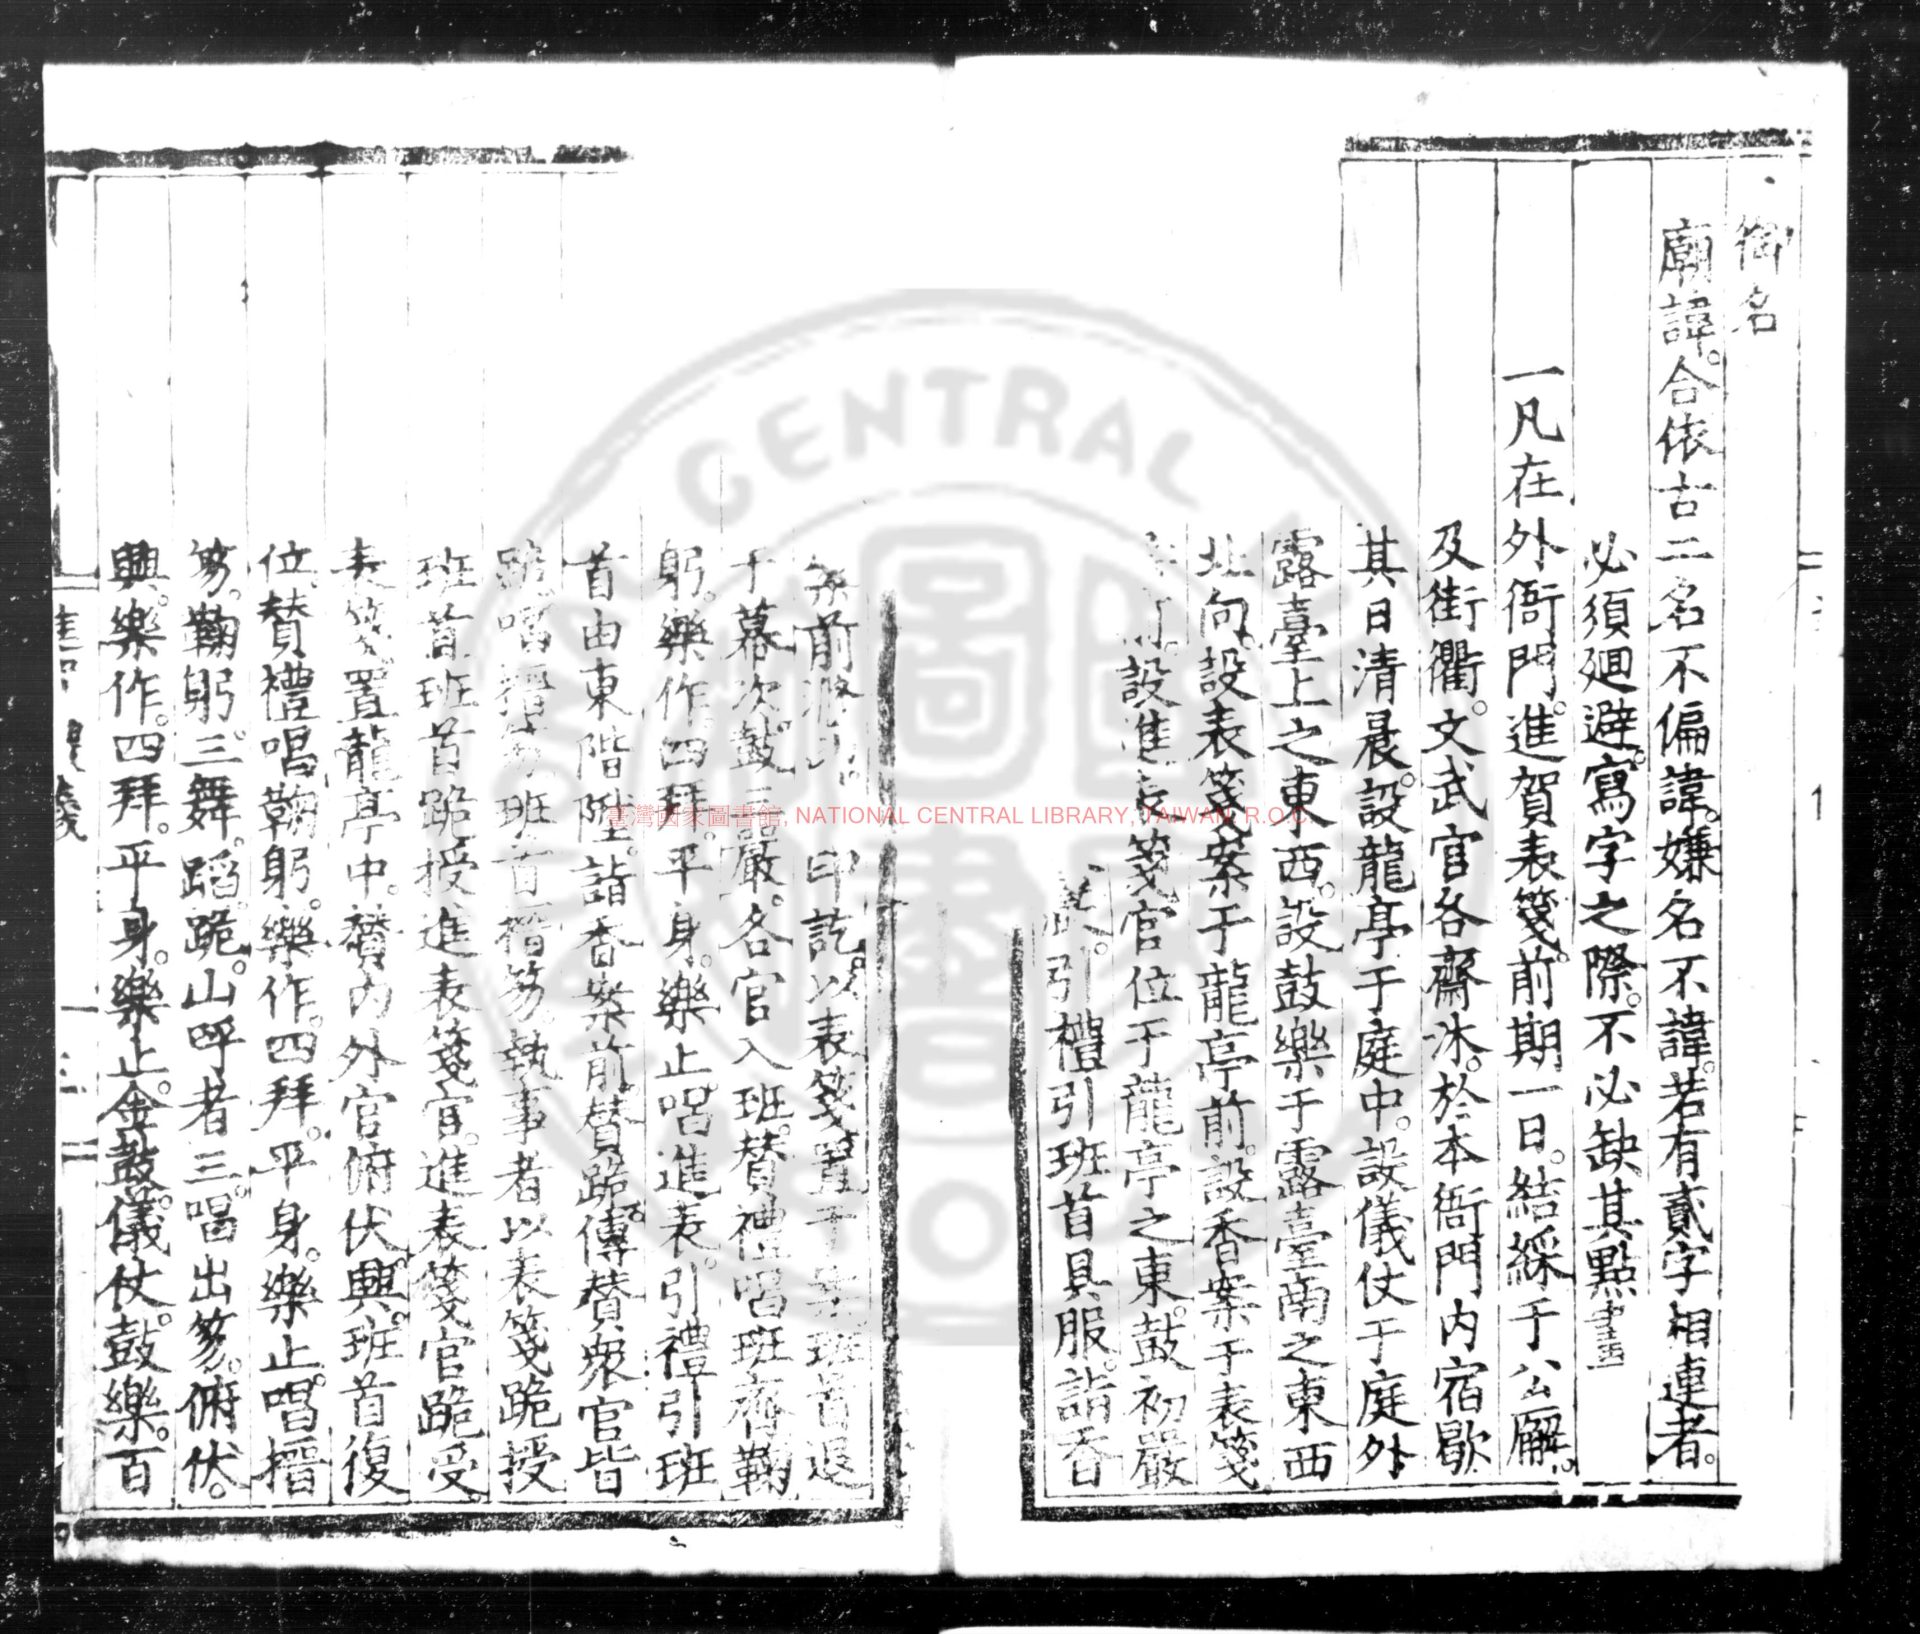 御名
廟諱。合依古二名不偏諱。嫌名不諱。若有貳字相連者。
必須廻避。寫字之際。不必缺其點畫
一凡在外衙門。進賀表箋。前期一日。結綵于公廨。
及街衢。文武官各齋沐。於本衙門內宿歇
其日清晨。設龍亭于庭中。設儀仗于庭外
露臺上之東西。設鼓樂于露臺南之東西
北向。設表箋案于龍亭前。設香案于表箋
設進表箋官位于龍亭之東。鼓初嚴
引禮引班首具服。詣香
案前 印訖。以表箋置于案。班首退
于幕次。鼓三嚴。各官入班。贊禮唱班齊。鞠
躬。樂作。四拜。平身。樂止。唱進表。引禮引班
首由東階陞。詣香案前。贊跪。傳贊衆官皆
跪。唱搢笏。班首搢笏。執事者以表箋跪授
班首。班首跪授進表箋官。進表箋官跪受。
表箋。置龍亭中。贊內外官俯伏。興。班首復
位。贊禮唱鞠躬。樂作。四拜。平身。樂止。唱搢
笏。鞠躬。三舞。蹈。跪。山呼者三。唱出笏。俯伏。
興。樂作。四拜。平身。樂止。金鼓。儀仗。鼓樂。百
臺灣國家圖書館, NATIONAL CENTRAL LIBRARY, TAIWAN, R.O.C.